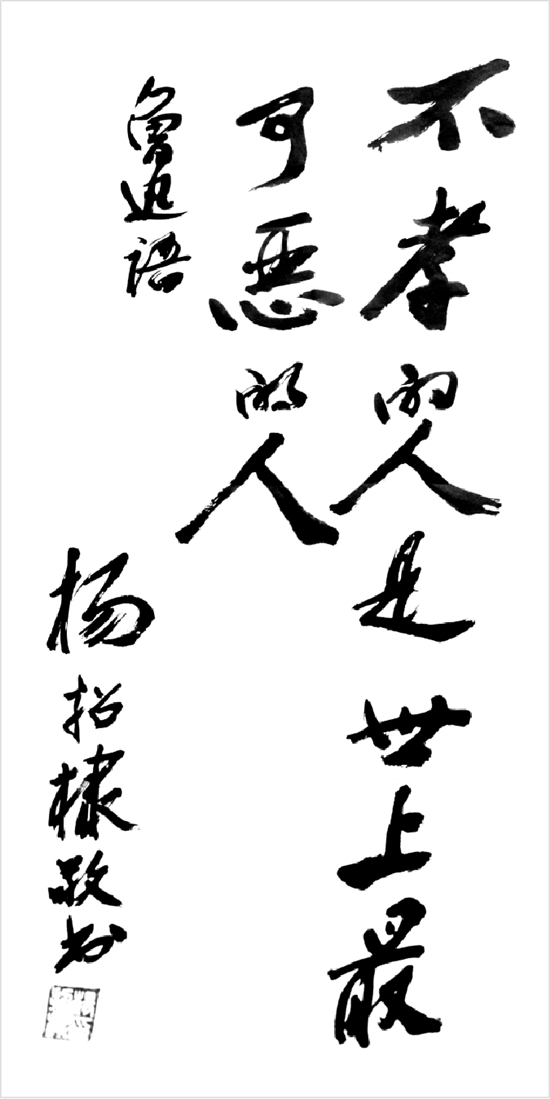 不孝的人是世上最
可恶的人
鲁迅语
杨招棣敬书